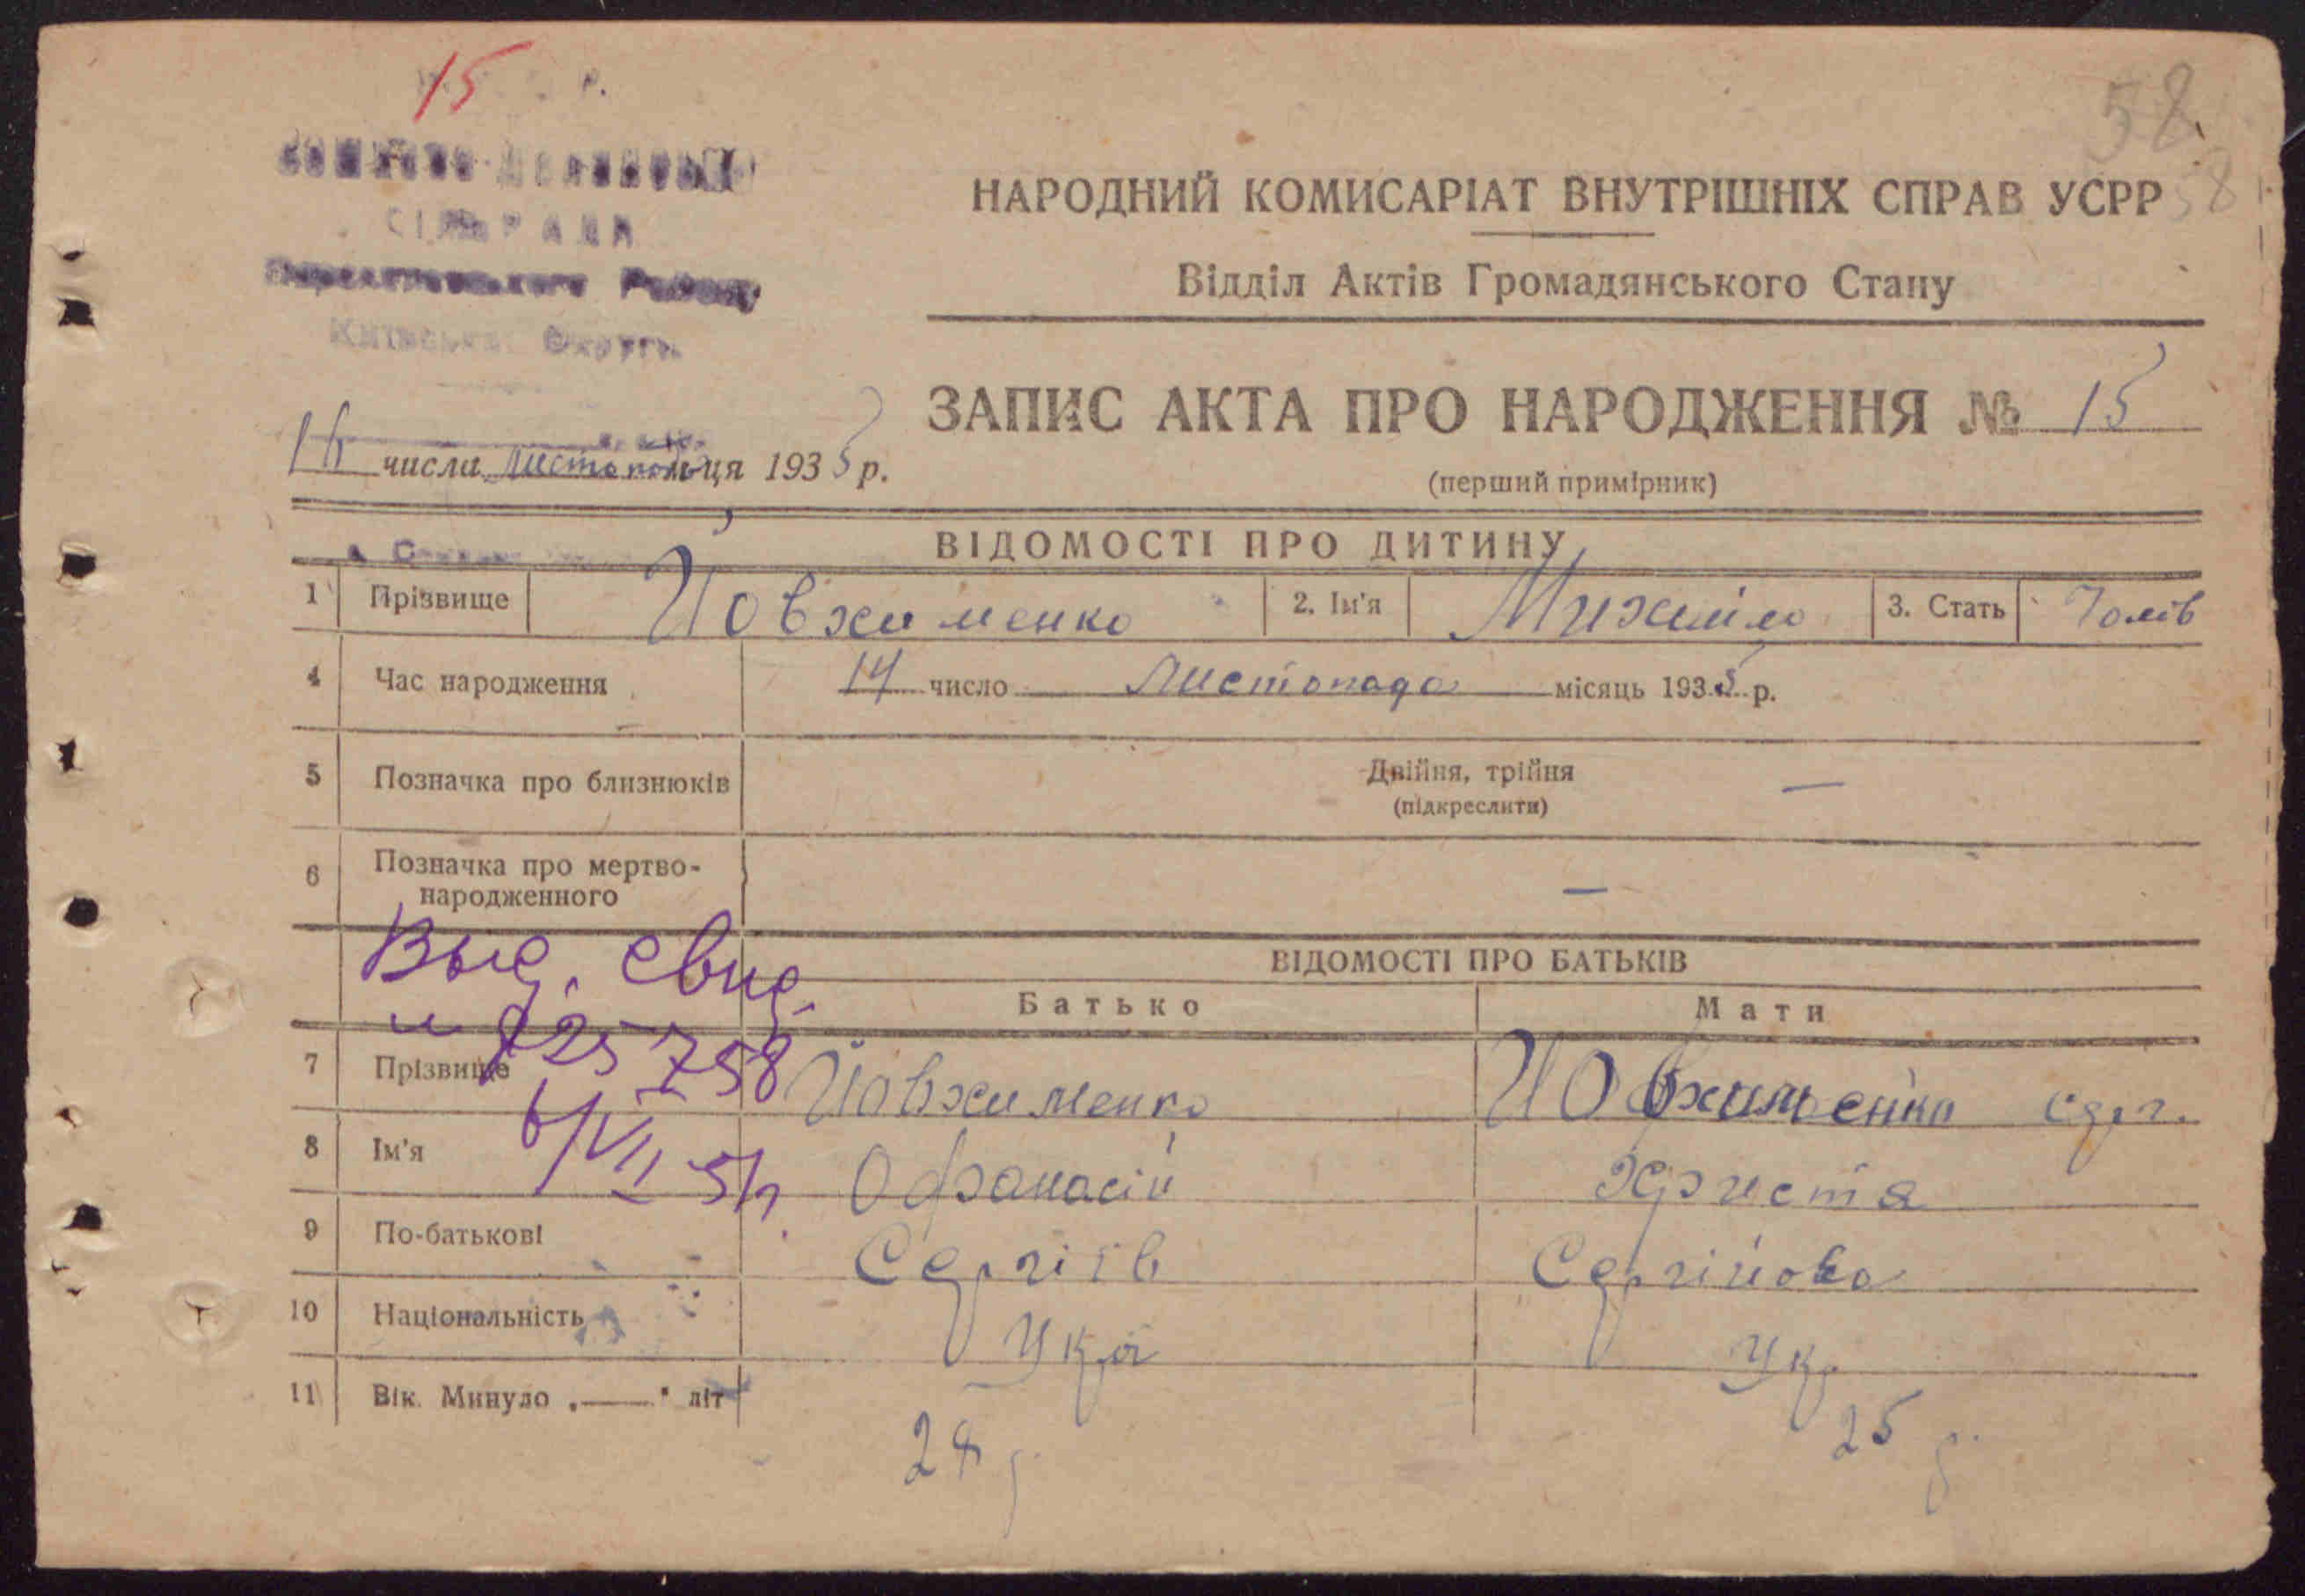 15
58
58
СІЛЬРАДА
Району
Київської Округи
НАРОДНИЙ КОМИСАРІАТ ВНУТРІШНІХ СПРАВ УСРР
Відділ Актів Громадянського Стану
ЗАПИС АКТА ПРО НАРОДЖЕННЯ № 15
(перший примірник)
16 числа листопада м-ця 1935 р.
ВІДОМОСТІ ПРО ДИТИНУ
1 Прізвище Йовхименко 2. Ім'я Михайло 3. Стать Чолов
4 Час народження 14 число Листопада місяць 1935 р.
5 Позначка про близнюків Двійня, трійня —
(підкреслити)
6 Позначка про мертво-
народженного —
ВІДОМОСТІ ПРО БАТЬКІВ
Батько Мати
Выд. свид.
25758
7 Прізвище Йовхименко Йовхименко
8 Ім'я Офанасій Христя
9 По-батькові Сергіїв Сергійовна
10 Національність Укр Укр
11 Вік. Минуло „—" літ
28 25